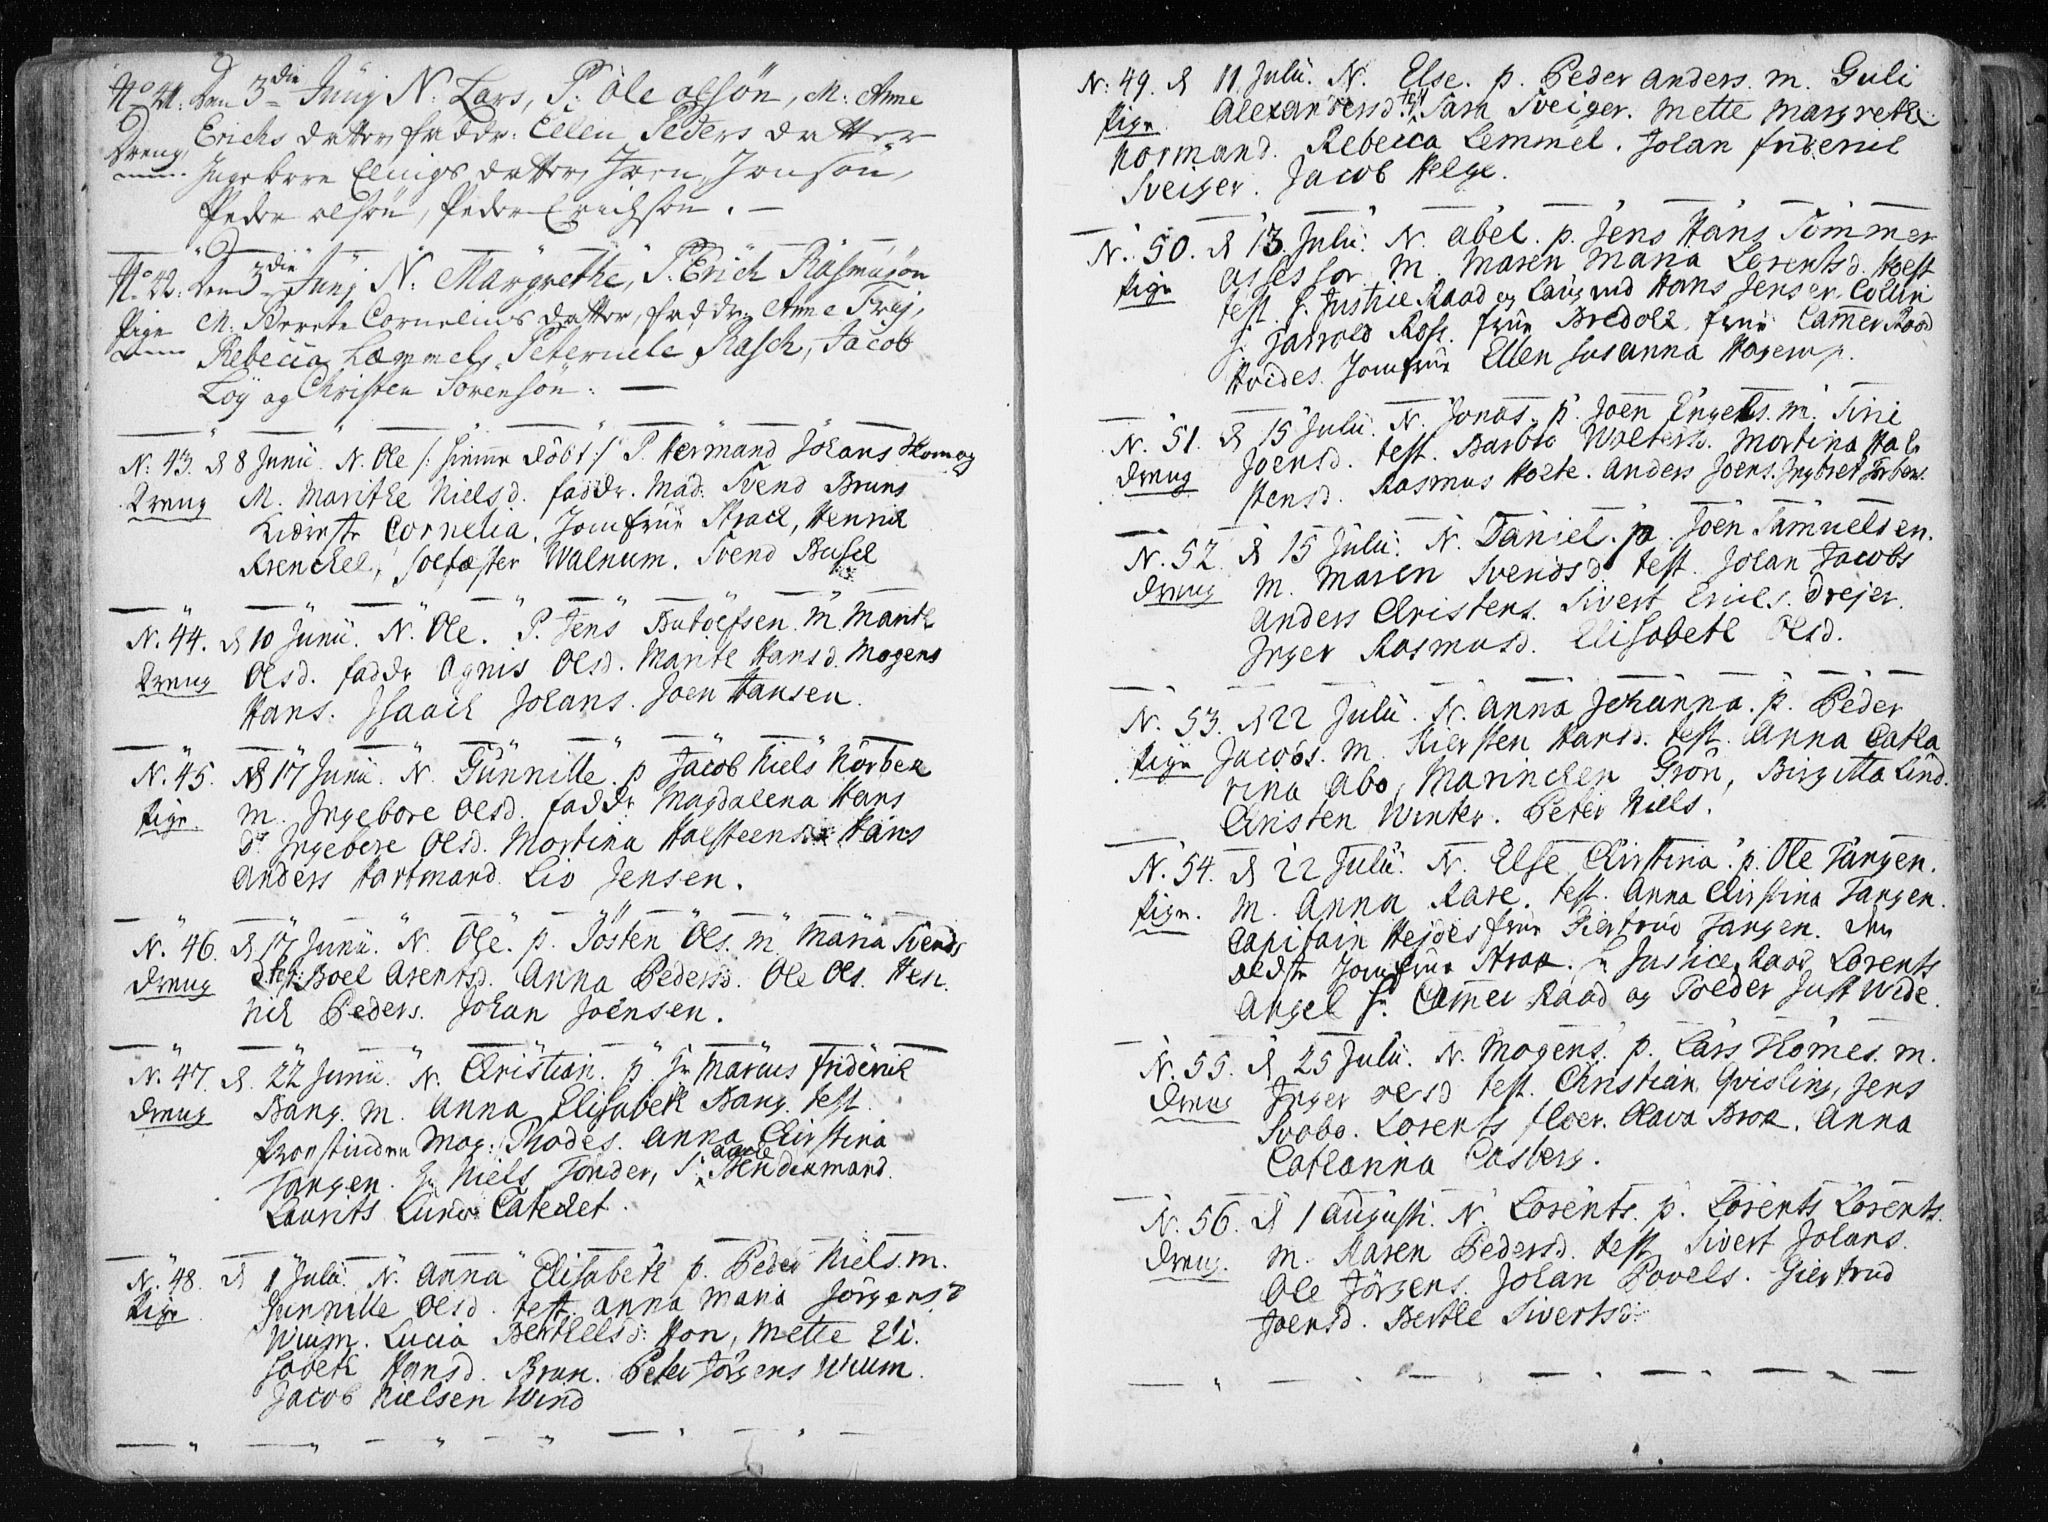 No 41. Den 3die Junij N. Lars, P: Ole olsön, M: Anne
Dreng Erichs datter faddr: Ellen Peders datter
Ingeborre Elings datter, Joen Jonsön,
Peder olsön, Peder Erichsön.
No 42. Den 3die Junj N: Margrethe, P. Erich Rasmusön
Pige M. Berete Cornelius datter, faddr. Anne Frej,
Rebecca Læmmels, Peternele Rasch, Jacob
Löy og Christen Sörensön.
N. 43. d 8 Junii. N. Ole /: hiemme döbt :/ P. Hermand Johans
Dreng M. Marithe Nielsd. faddr. Mad: Svend Bruns
Kiæreste Cornelia. Jomfrue Strach, Henrich
Krenchel, Walnum. Svend Busch
N. 44. d 10 Junii. N. Ole. P. Jens M. Marith
Dreng Olsd. faddr Agnis Olsd. Marite Hansd. Mogens
Hans. Isaach Johans. Joen Hansen.
N. 45. d 17 Junii. N. Gunnille. p Jacob Niels Norbek
Pige. m. Ingebore Olsd. faddr Magdalena Hans
dr Ingebore Olsd. Mortina Halsteensd. Hans
Anders Hartmand. Liv Jensen.
N. 46. d 17 Junii. N. Ole. p. Josten Ols. m Maria Svends
Dreng d. test: Boel Arentsd. Anna Pedersd. Ole Ols. Hen
rich Peders. Johan Joensen.
N. 47. d. 22 Junii. N. Christian. p. Hr Marcus Friderich
Dreng Bang. m. Anna Elisabeth Bang. test.
Provstinden Mag: Rhodes. Anna Christina
Tangen. Hr Niels Tönder, S: Aarle Hendermand.
Laurits Lund Catechet.
N. 48. d 1 Julii. N. Anna Elisabeth p. Peder Niels. m.
Pige Gunnille Olsd. test. Anna Maria Jörgensd
Wium. Lucia Berthelsd: Hon, Mette Eli.
sabeth Hansd. Brun. Peter Jörgens Wium.
Jacob Nielsen Wind
N. 49. d 11 Julii. N. Else. p. Peder Anders. m. Guli
Pige Alexandersd. test Sara Sveiger. Mette Margrethe
Normand. Rebecca Lemmel. Johan friderich
Sveiger. Jacob Helge.
N. 50. d 13. Julii. N. Abel. p. Jens Hans Tömmer
Pige assessor m. Maren Maria Lorentsd. Hoest
test. Hr Justice Raad og Laugmd Hans Jenser Collin
Hr Ross. frue Bredolz. frue Camer Raad
Hveides. Jomfrue Ellen Susanna Hagerup.
N. 51. d 15 Julii. N. Jonas. p. Joen Engels. m. Siri
Dreng Joensd. test. Barbro Woltersd. Mortina Hal
stensd. Rasmus Holte. Anders Joens. Ingbret Torbers.
N. 52. d 15 Julii. N. Daniel. p. Joen Samuelsen.
Dreng m. Maren Svendsd. test. Johan Jacobs
Anders Christens. Sivert Erichs. Drejer.
Inger Rasmusd. Elisabeth Olsd.
N. 53. d 22 Julii. N. Anna Johanna. p. Peder
Pige Jacobs. m. Kiersten Hansd. test. Anna Catha
rina Abo, Marinchen Grön, Birgitta Lind.
Christen Winter. Peter Niels.
N. 54. d 22 Julii. N. Else Christina. p. Ole Tangen.
Pige. m. Anna Kare. test. Anna Christina Tangen.
Capitain Hejdes frue Giertrud Tangen. Den
ældste Jomfrue Strax. Hr Justice Raad Lorents
Angel Hr. Camer Raad og Just Wide.
N. 55. d 25 Julii. N. Mogens. p. Lars Thomes. m.
Dreng Inger Olsd test. Christian Qvisling, Jens
Svabo. Lorents floer. Olava Brox. Anna
Cathanna Casberg.
N. 56. d 1 Augusti. N. Lorents. p. Lorents Lorents.
Dreng. m. Karen Pedersd. test Sivert Johans.
Ole Jörgens. Johan Povels. Giertrud
Joensd. Berthe Sivertsd: